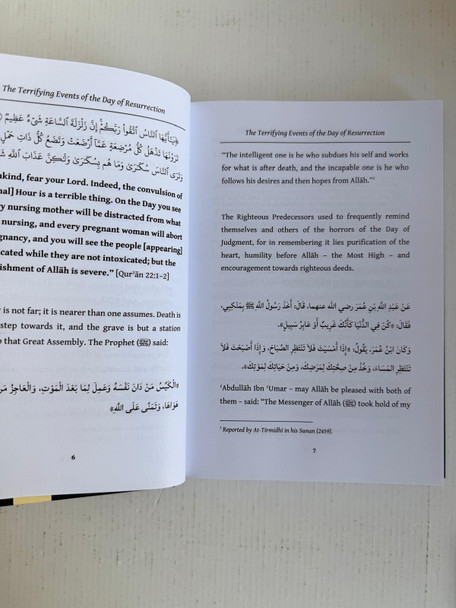 The Terrifying Events of the Day of Resurrection
﴿يَٰٓأَيُّهَا ٱلنَّاسُ ٱتَّقُوا۟ رَبَّكُمْ إِنَّ زَلْزَلَةَ ٱلسَّاعَةِ شَىْءٌ عَظِيمٌ
تَرَوْنَهَا تَذْهَلُ كُلُّ مُرْضِعَةٍ عَمَّآ أَرْضَعَتْ وَتَضَعُ كُلُّ ذَاتِ حَمْلٍ
وَتَرَى ٱلنَّاسَ سُكَٰرَىٰ وَمَا هُم بِسُكَٰرَىٰ وَلَٰكِنَّ عَذَابَ ٱللَّهِ
kind, fear your Lord. Indeed, the convulsion of
Hour is a terrible thing. On the Day you see
nursing mother will be distracted from what
nursing, and every pregnant woman will abort
and you will see the people [appearing]
while they are not intoxicated; but the
of Allāh is severe.” [Qur’ān 22:1-2]
is not far; it is nearer than one assumes. Death is
step towards it, and the grave is but a station
that Great Assembly. The Prophet (ﷺ) said:
«الْكَيِّسُ مَنْ دَانَ نَفْسَهُ وَعَمِلَ لِمَا بَعْدَ الْمَوْتِ، وَالْعَاجِزُ مَنْ
هَوَاهَا، وَتَمَنَّى عَلَى اللَّهِ»
6
The Terrifying Events of the Day of Resurrection
“The intelligent one is he who subdues his self and works
for what is after death, and the incapable one is he who
follows his desires and then hopes from Allāh.”¹
The Righteous Predecessors used to frequently remind
themselves and others of the horrors of the Day of
Judgment, for in remembering it lies purification of the
heart, humility before Allāh – the Most High – and
encouragement towards righteous deeds.
عَنْ عَبْدِ اللَّهِ بْنِ عُمَرَ رضي الله عنهما، قَالَ: أَخَذَ رَسُولُ اللَّهِ ﷺ بِمَنْكِبِي،
فَقَالَ: «كُنْ فِي الدُّنْيَا كَأَنَّكَ غَرِيبٌ أَوْ عَابِرُ سَبِيلٍ».
وَكَانَ ابْنُ عُمَرَ، يَقُولُ: «إِذَا أَمْسَيْتَ فَلاَ تَنْتَظِرِ الصَّبَاحَ، وَإِذَا أَصْبَحْتَ فَلاَ
تَنْتَظِرِ المَسَاءَ، وَخُذْ مِنْ صِحَّتِكَ لِمَرَضِكَ، وَمِنْ حَيَاتِكَ لِمَوْتِكَ».
ʿAbdullāh Ibn ʿUmar – may Allāh be pleased with both of
them – said: “The Messenger of Allāh (ﷺ) took hold of my
¹ Reported by At-Tirmidhī in his Sunan (2459).
7